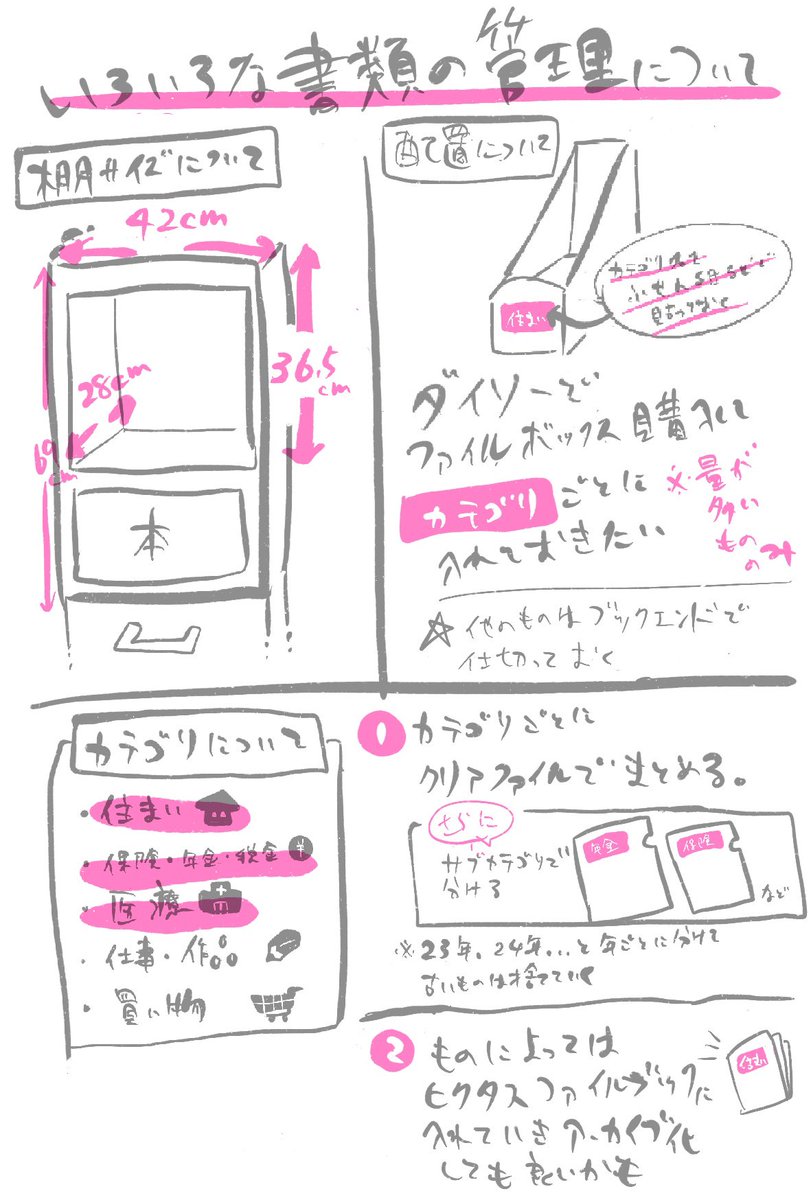 いろいろな書類の管理について
棚サイズについて
42cm
36.5
cm
28cm
69
cm
本
配置について
住まい
カテゴリ
ふせん
貼っておく
ダイソーで
ファイルボックス購入して
カテゴリごとに
入れておきたい
※量が
多い
もの
のみ
☆他のものはブックエンドで
仕切っておく
カテゴリについて
・住まい
・保険・年金・税金 ¥
・医療
・仕事・作品
・買い物
1 カテゴリごとに
クリアファイルでまとめる。
さらに
サブカテゴリで
分ける
年金
保険
など
※23年、24年...と年ごとに分けて
古いものは捨てていく
2 ものによっては
ピクタスファイルブックに
入れていきアーカイブ化
しても良いかも
住まい